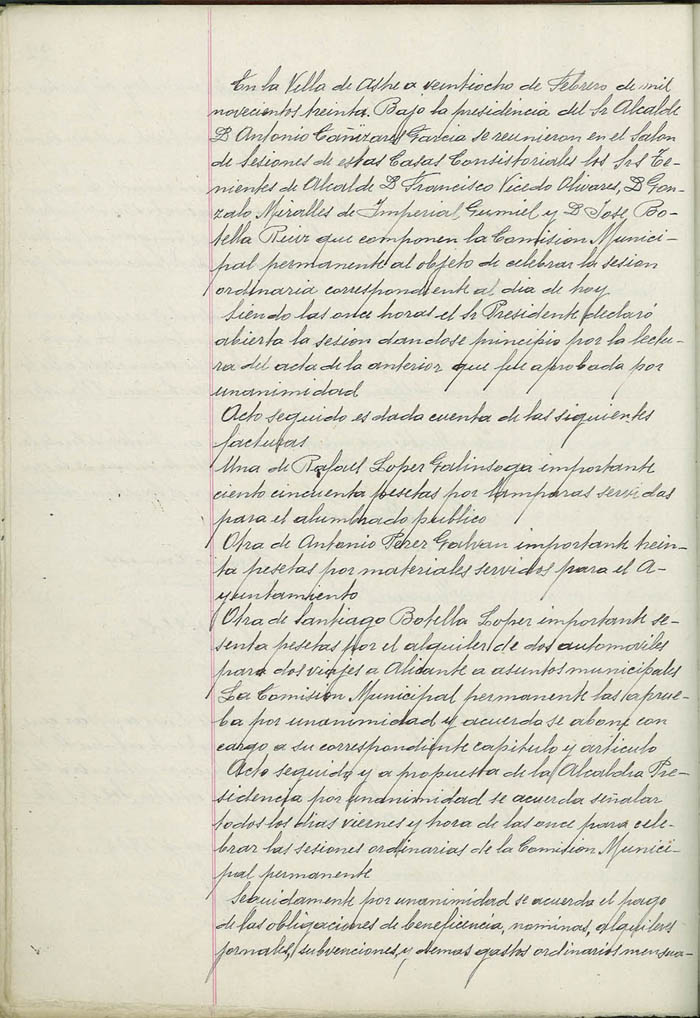 En la Villa de Asthe a veintiocho de Febrero de mil
novecientos treinta. Bajo la presidencia del Sr Alcalde
D Antonio Cañizares Garcia se reunieron en el Salon
de Sesiones de estas Casas Consistoriales los Srs Te-
nientes de Alcalde D Francisco Vicedo Olivares, D Gon-
zalo Miralles de Imperial Gumiel y D Jose Bo-
tella Ruiz que componen la Comision Munici-
pal permanente al objeto de celebrar la sesion
ordinaria correspondiente al dia de hoy
Siendo las once horas el Sr Presidente declaró
abierta la sesion dandose principio por la lectu-
ra del acta de la anterior que fue aprobada por
unanimidad
Acto seguido es dada cuenta de las siguientes
facturas
Una de Rafael Loper Galinsoga importante
ciento cincuenta pesetas por lamparas servidas
para el alumbrado publico
Otra de Antonio Perez Galvan importante trein-
ta pesetas por materiales servidos para el A-
yuntamiento
Otra de Santiago Botella Loper importante se-
senta pesetas por el alquiler de dos automoviles
para dos viajes a Alicante a asuntos municipales
La Comision Municipal permanente las aprue-
ba por unanimidad y acuerda se abone con
cargo a su correspondiente capitulo y articulo
Acto seguido y a propuesta de la Alcaldia Pre-
sidencia por unanimidad se acuerda señalar
todos los dias viernes y hora de las once para cele-
brar las sesiones ordinarias de la Comision Munici-
pal permanente
Seguidamente por unanimidad se acuerda el pago
de las obligaciones de beneficencia, nominas, alquileres
jornales, subvenciones, y demas gastos ordinarios mensua-